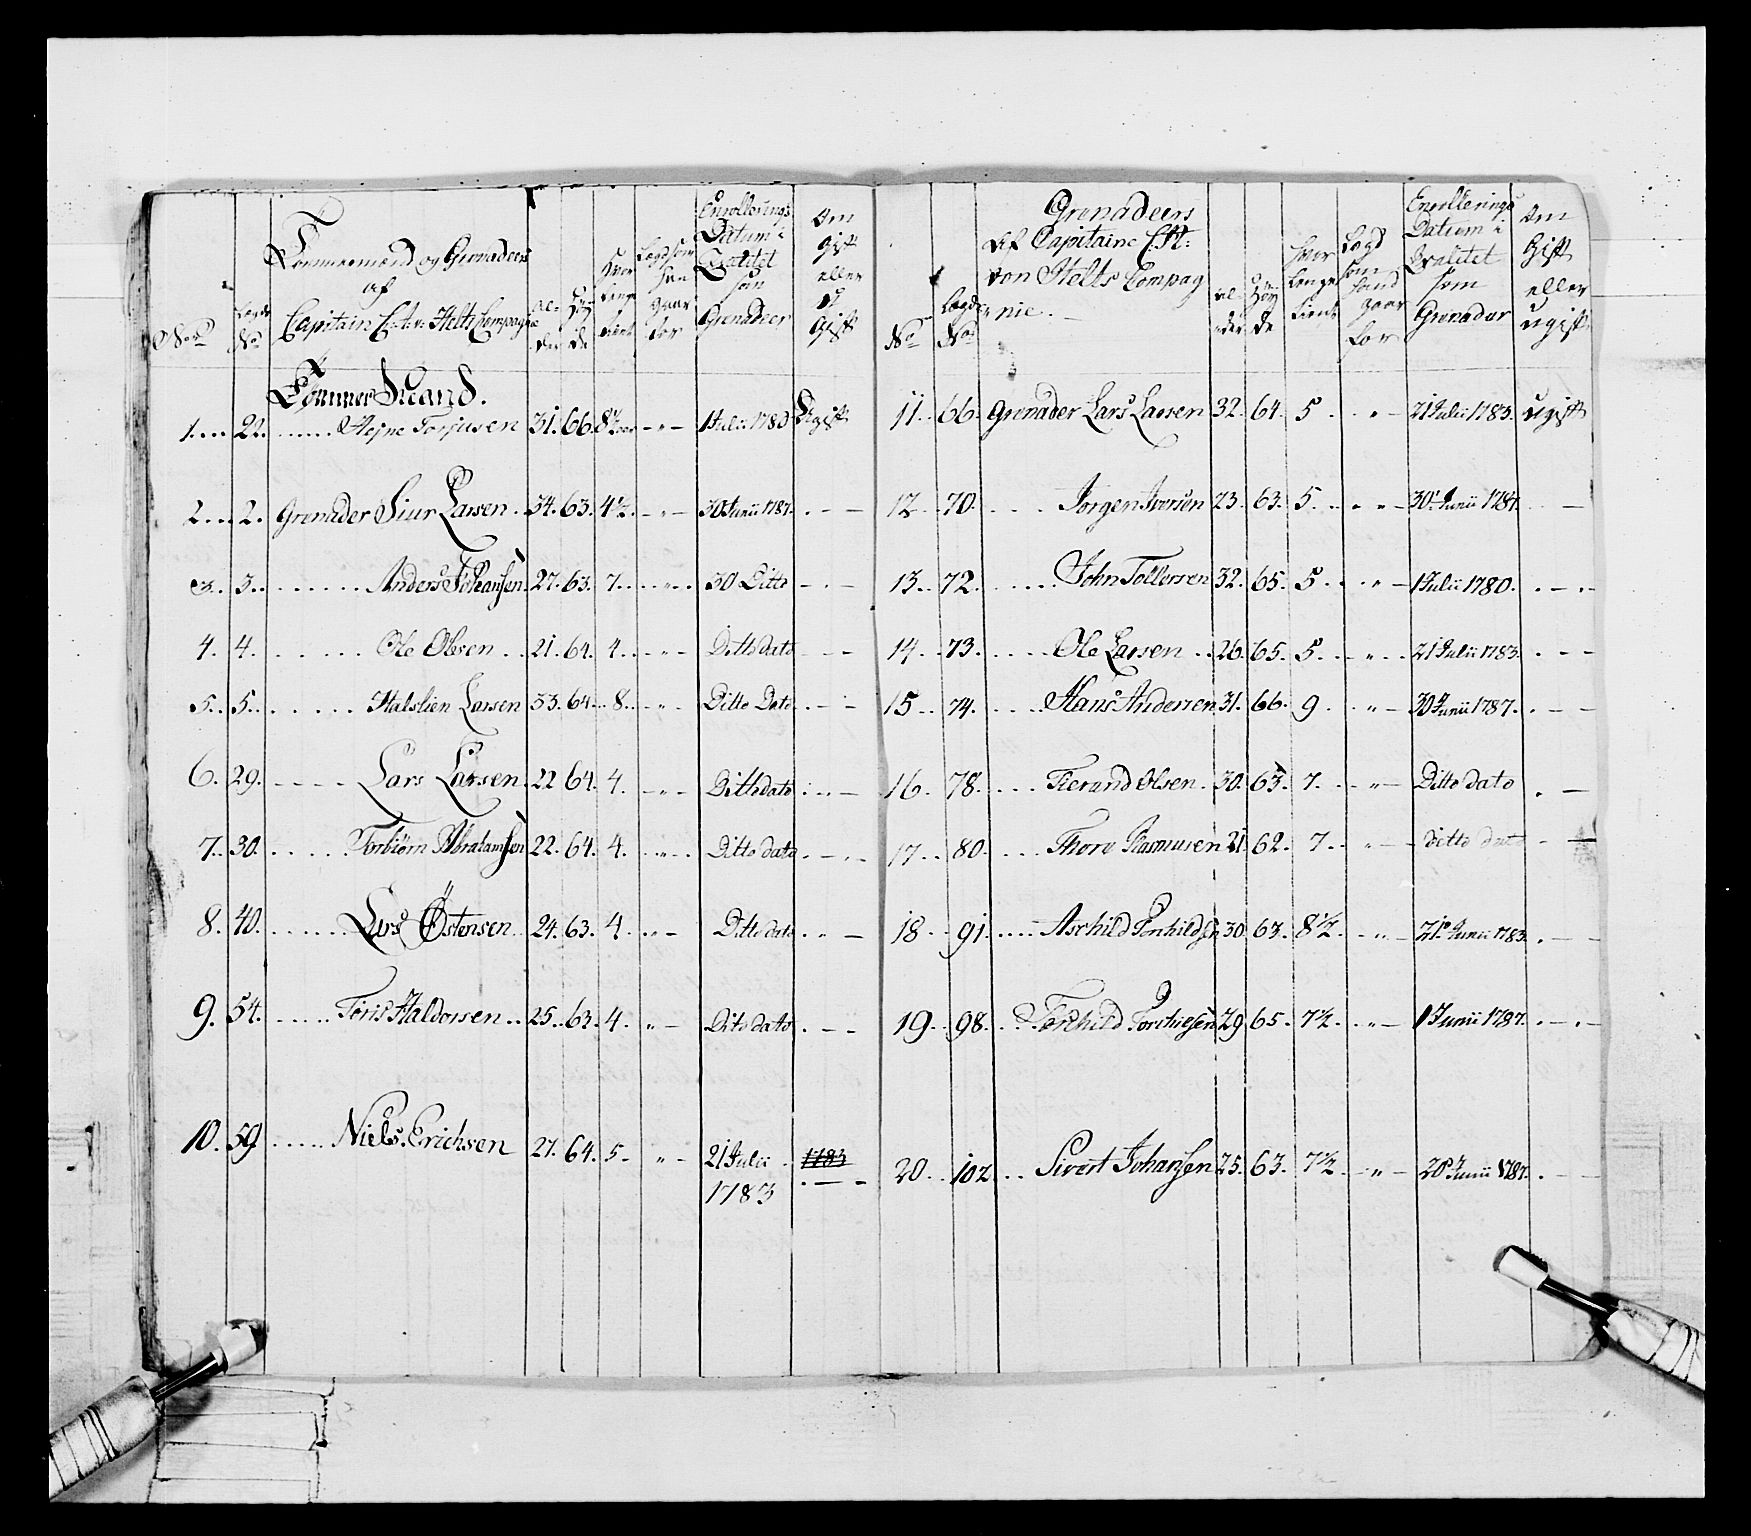 No
Lagde No
Tømmermænd og Grenadeers
af
Capitain C: A: v: Helts Compagnie
Al-
der
Høy
de
Hvor
lenge
tient
Lægd som
han
gaar
for
Enrollerings
Datum i
Qvalitet
som
Grenadeer
Om
Gift
eller
U
Gift
Tømmer Mand.
1. 22. Aejne Torjusen 31. 66. 8½ aar - " - 1 Julii 1780 Ugift
2. 2. Grenader Siur Larsen 34. 63. 4½. - " - 30 Junii 1787. - -
3. 3. Anders Johansen 27. 63. 7. - " - 30 Ditto - -
4. 4. Ole Olesen 21. 64. 4. - " - Ditto dato - -
5. 5. Halstien Larsen 33. 64. 8. - " - Ditto Dato - -
6. 29. Lars Larsen 22 64. 4. - " - Ditto dato - -
7. 30. Torbiørn Abrahamsen 22. 64. 4. - " - Ditto dato - -
8. 40. Lars Östensen 24. 63. 4. " - Ditto dato - -
9. 54. Toris Haldorsen 25. 63. 4. " - Dito dato - -
10. 59 Niels Erichsen 27. 64. 5. " - 21 Julii 1783
1783 - -
No
Lagde No
Grenadeers
Af Capitaine C: A:
von Helts Compag
nie.
al-
der
Høy
de
hvor
lenge
tient
Lægd
som
hand
gaar
for
Enrollerings
Datum i
Qvalitet
som
Grenadar
Om
Gift
eller
ugift
11. 66. Grenader Lars Larsen 32. 64. 5. " - 21 Julii 1783. ugift
12. 70. Jørgen Iversen 23. 63. 5. " - 30 Junii 1787. - -
13. 72. John Tollersen 32. 65. 5. " - 1 Julii 1780. - -
14. 73. Ole Larsen 26. 65. 5. " - 21 Julii 1783. - -
15. 74. Hans Andersen 31. 66. 9. " - 30 Junii 1787. - -
16. 78. Tierand Olsen 30. 63. 7. " - Ditto dato - -
17. 80. Thore Rasmusen 21. 62. 7. " - ditto dato - -
18. 91. Aschild Tønhildsen 30. 63. 8½ - " - 21 Junii 1783. - -
19. 98. Torchild Torchiesen 29 65. 7½. " - 1 Junii 1787. - -
20. 102 Sivert Johansen 25. 63. 7½ - " - 20 Junii 1787. - -